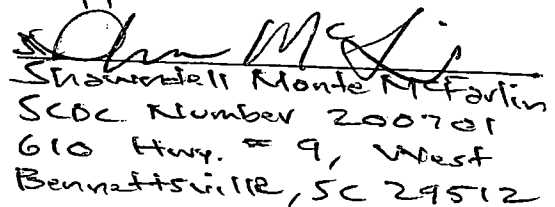 Shawndell Monte McFarlin
SCDC Number 200701
610 Hwy. # 9, West
Bennettsville, SC 29512